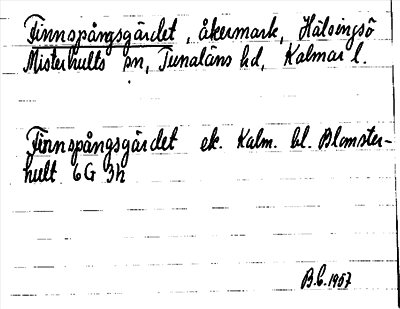 Finnspångsgärdet, åkermark, Hälsingsö
Misterhults sn, Tunaläns hd, Kalmar l.
Finnspångsgärdet ek. Kalm. bl. Blomster-
hult 6G 3h
B.C. 1957